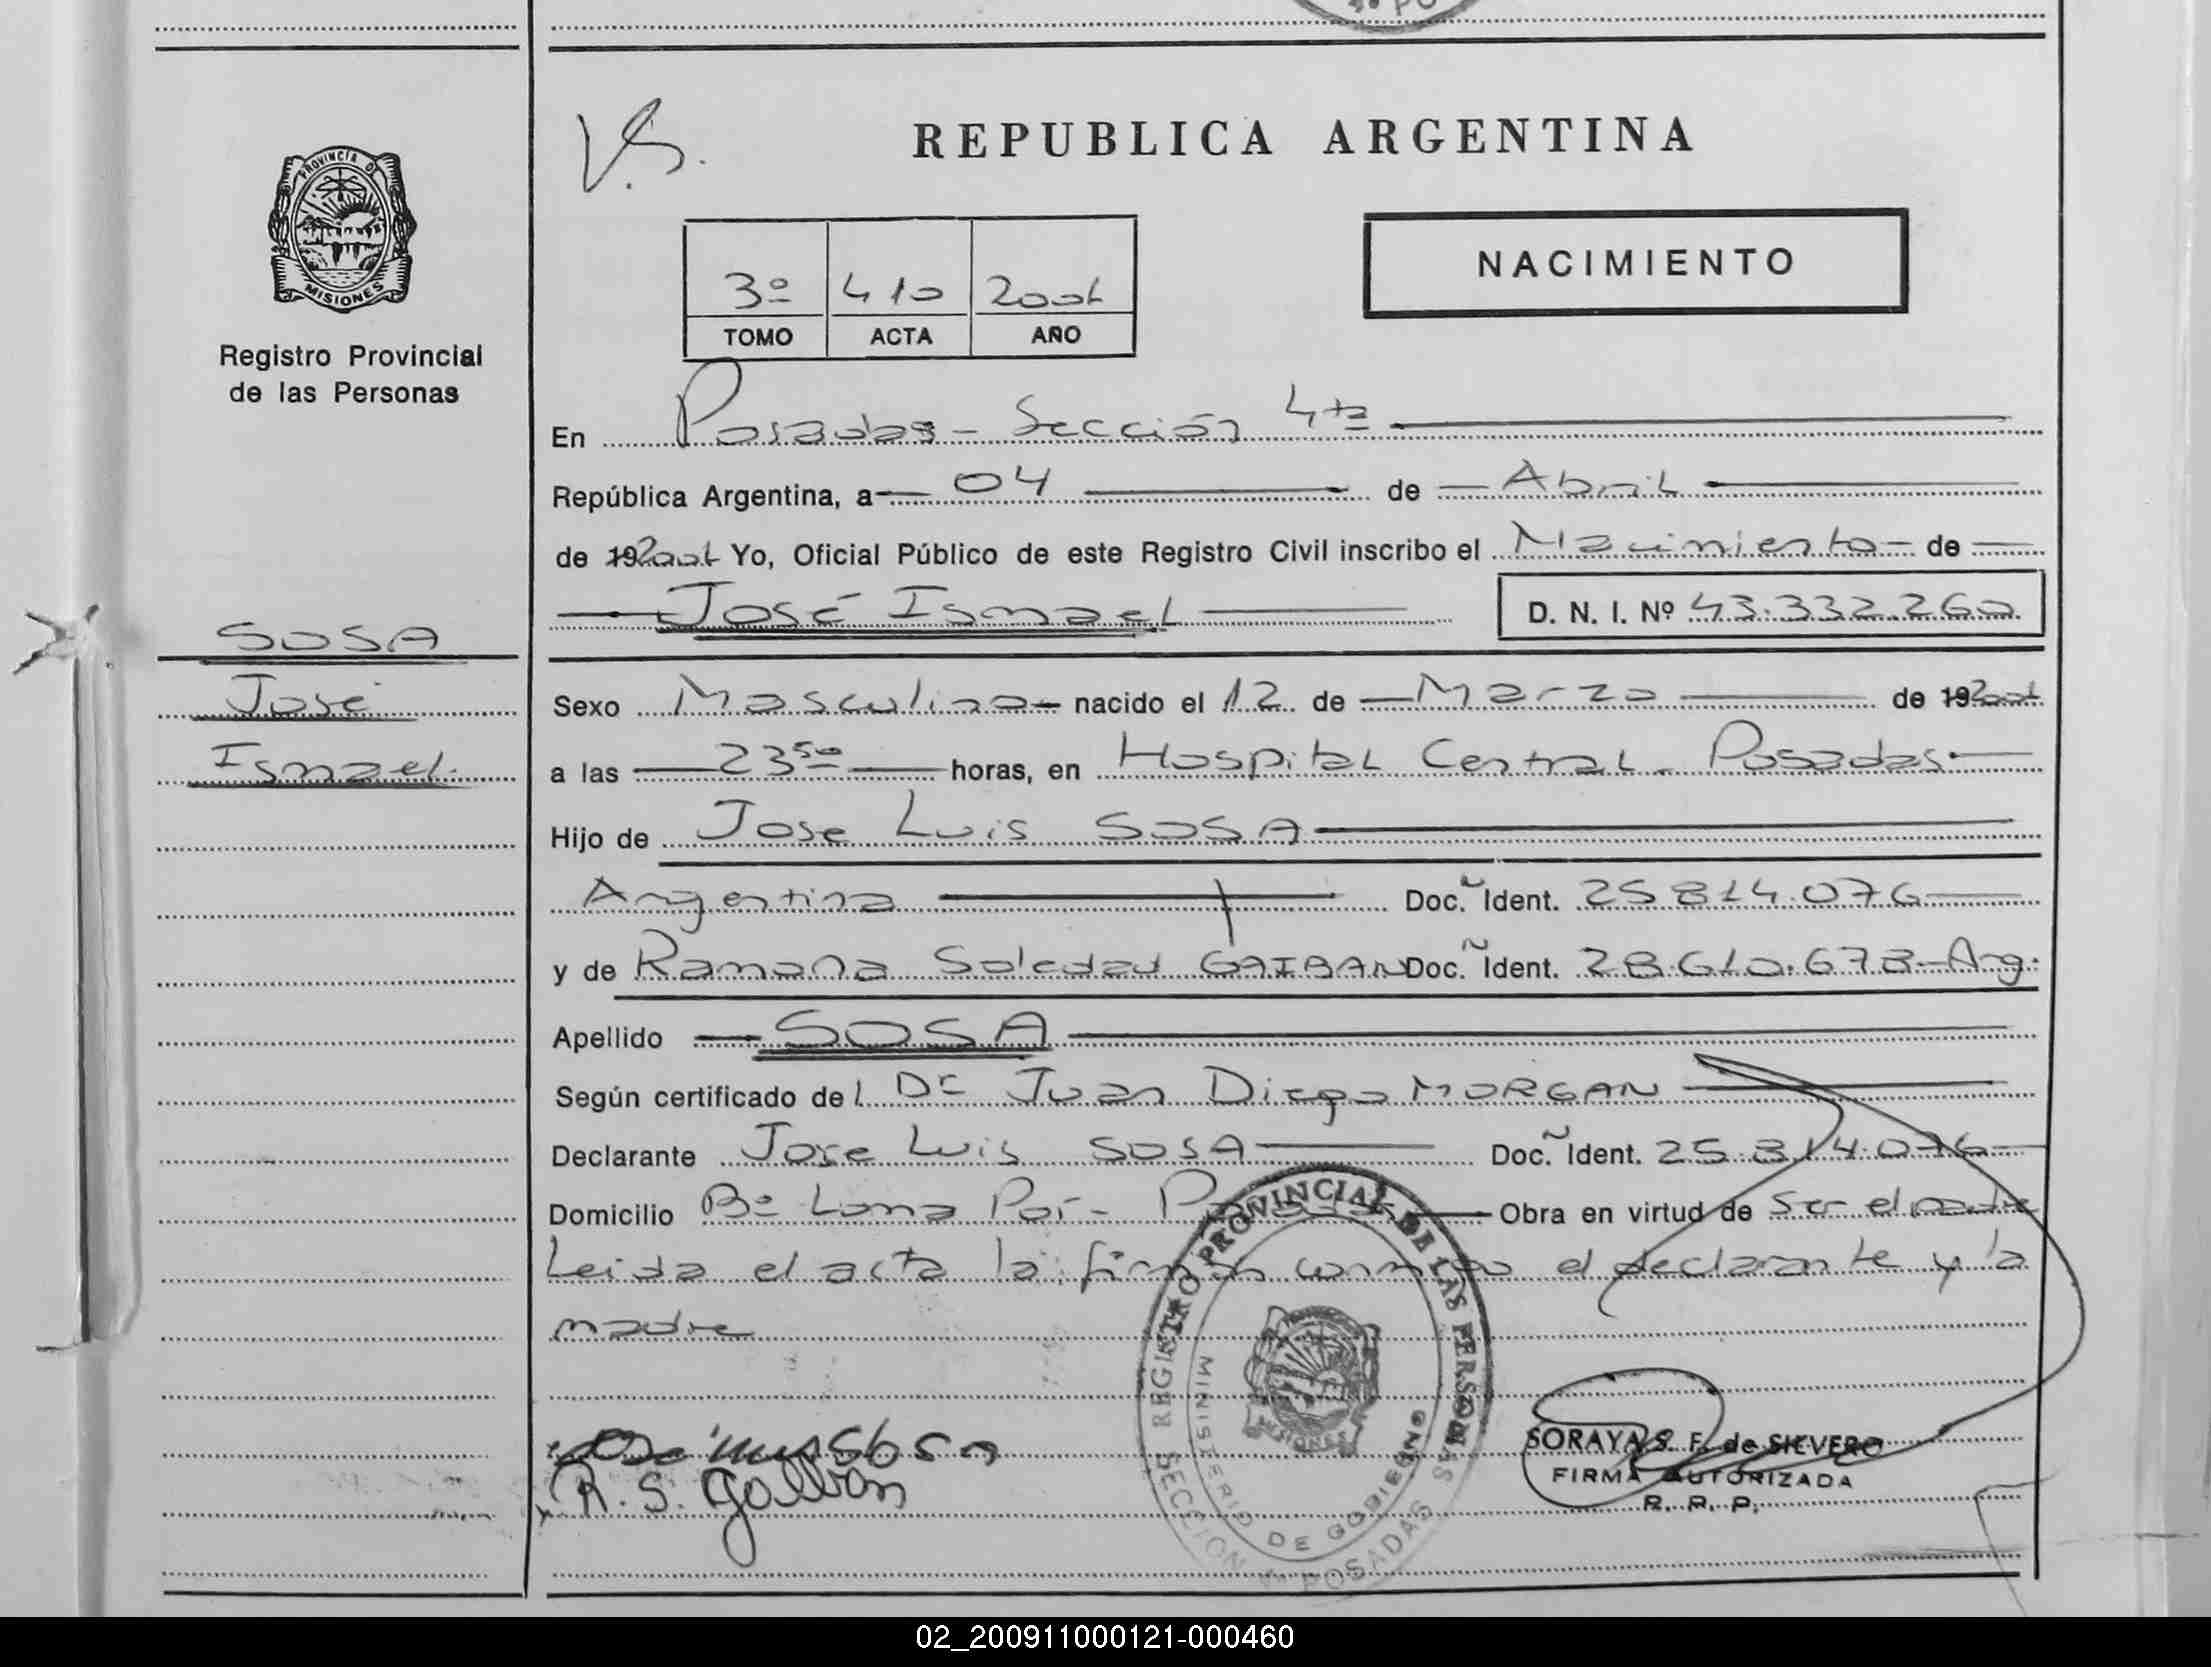 PROVINCIA DE
MISIONES
Registro Provincial
de las Personas
SOSA
José
Ismael
V.S.
REPUBLICA ARGENTINA
NACIMIENTO
3º 410 2001
TOMO ACTA AÑO
En Posadas - Sección 4ta
República Argentina, a 04 de Abril
de 19 2001 Yo, Oficial Público de este Registro Civil inscribo el Nacimiento de
José Ismael D. N. I. Nº 43.332.260
Sexo Masculino nacido el 12 de Marzo de 19 2001
a las 23 50 horas, en Hospital Central - Posadas
Hijo de Jose Luis SOSA
Argentina Doc. Ident. 25.814.076
y de Ramona Soledad Doc. Ident. 28.610.678 - Arg.
Apellido SOSA
Según certificado del Dr Juan Diego MORGAN
Declarante Jose Luis SOSA Doc. Ident. 25.814.076
Domicilio Bº Loma Poí - Posadas Obra en virtud de ser el padre
Leida el acta la firman conmigo el declarante y la
madre
R. S. Galban
REGISTRO PROVINCIAL DE LAS PERSONAS
MINISTERIO DE GOBIERNO
MISIONES
SECCION POSADAS
SORAYA S. F. de SIEVERO
FIRMA AUTORIZADA
R. P. P.
02_200911000121-000460